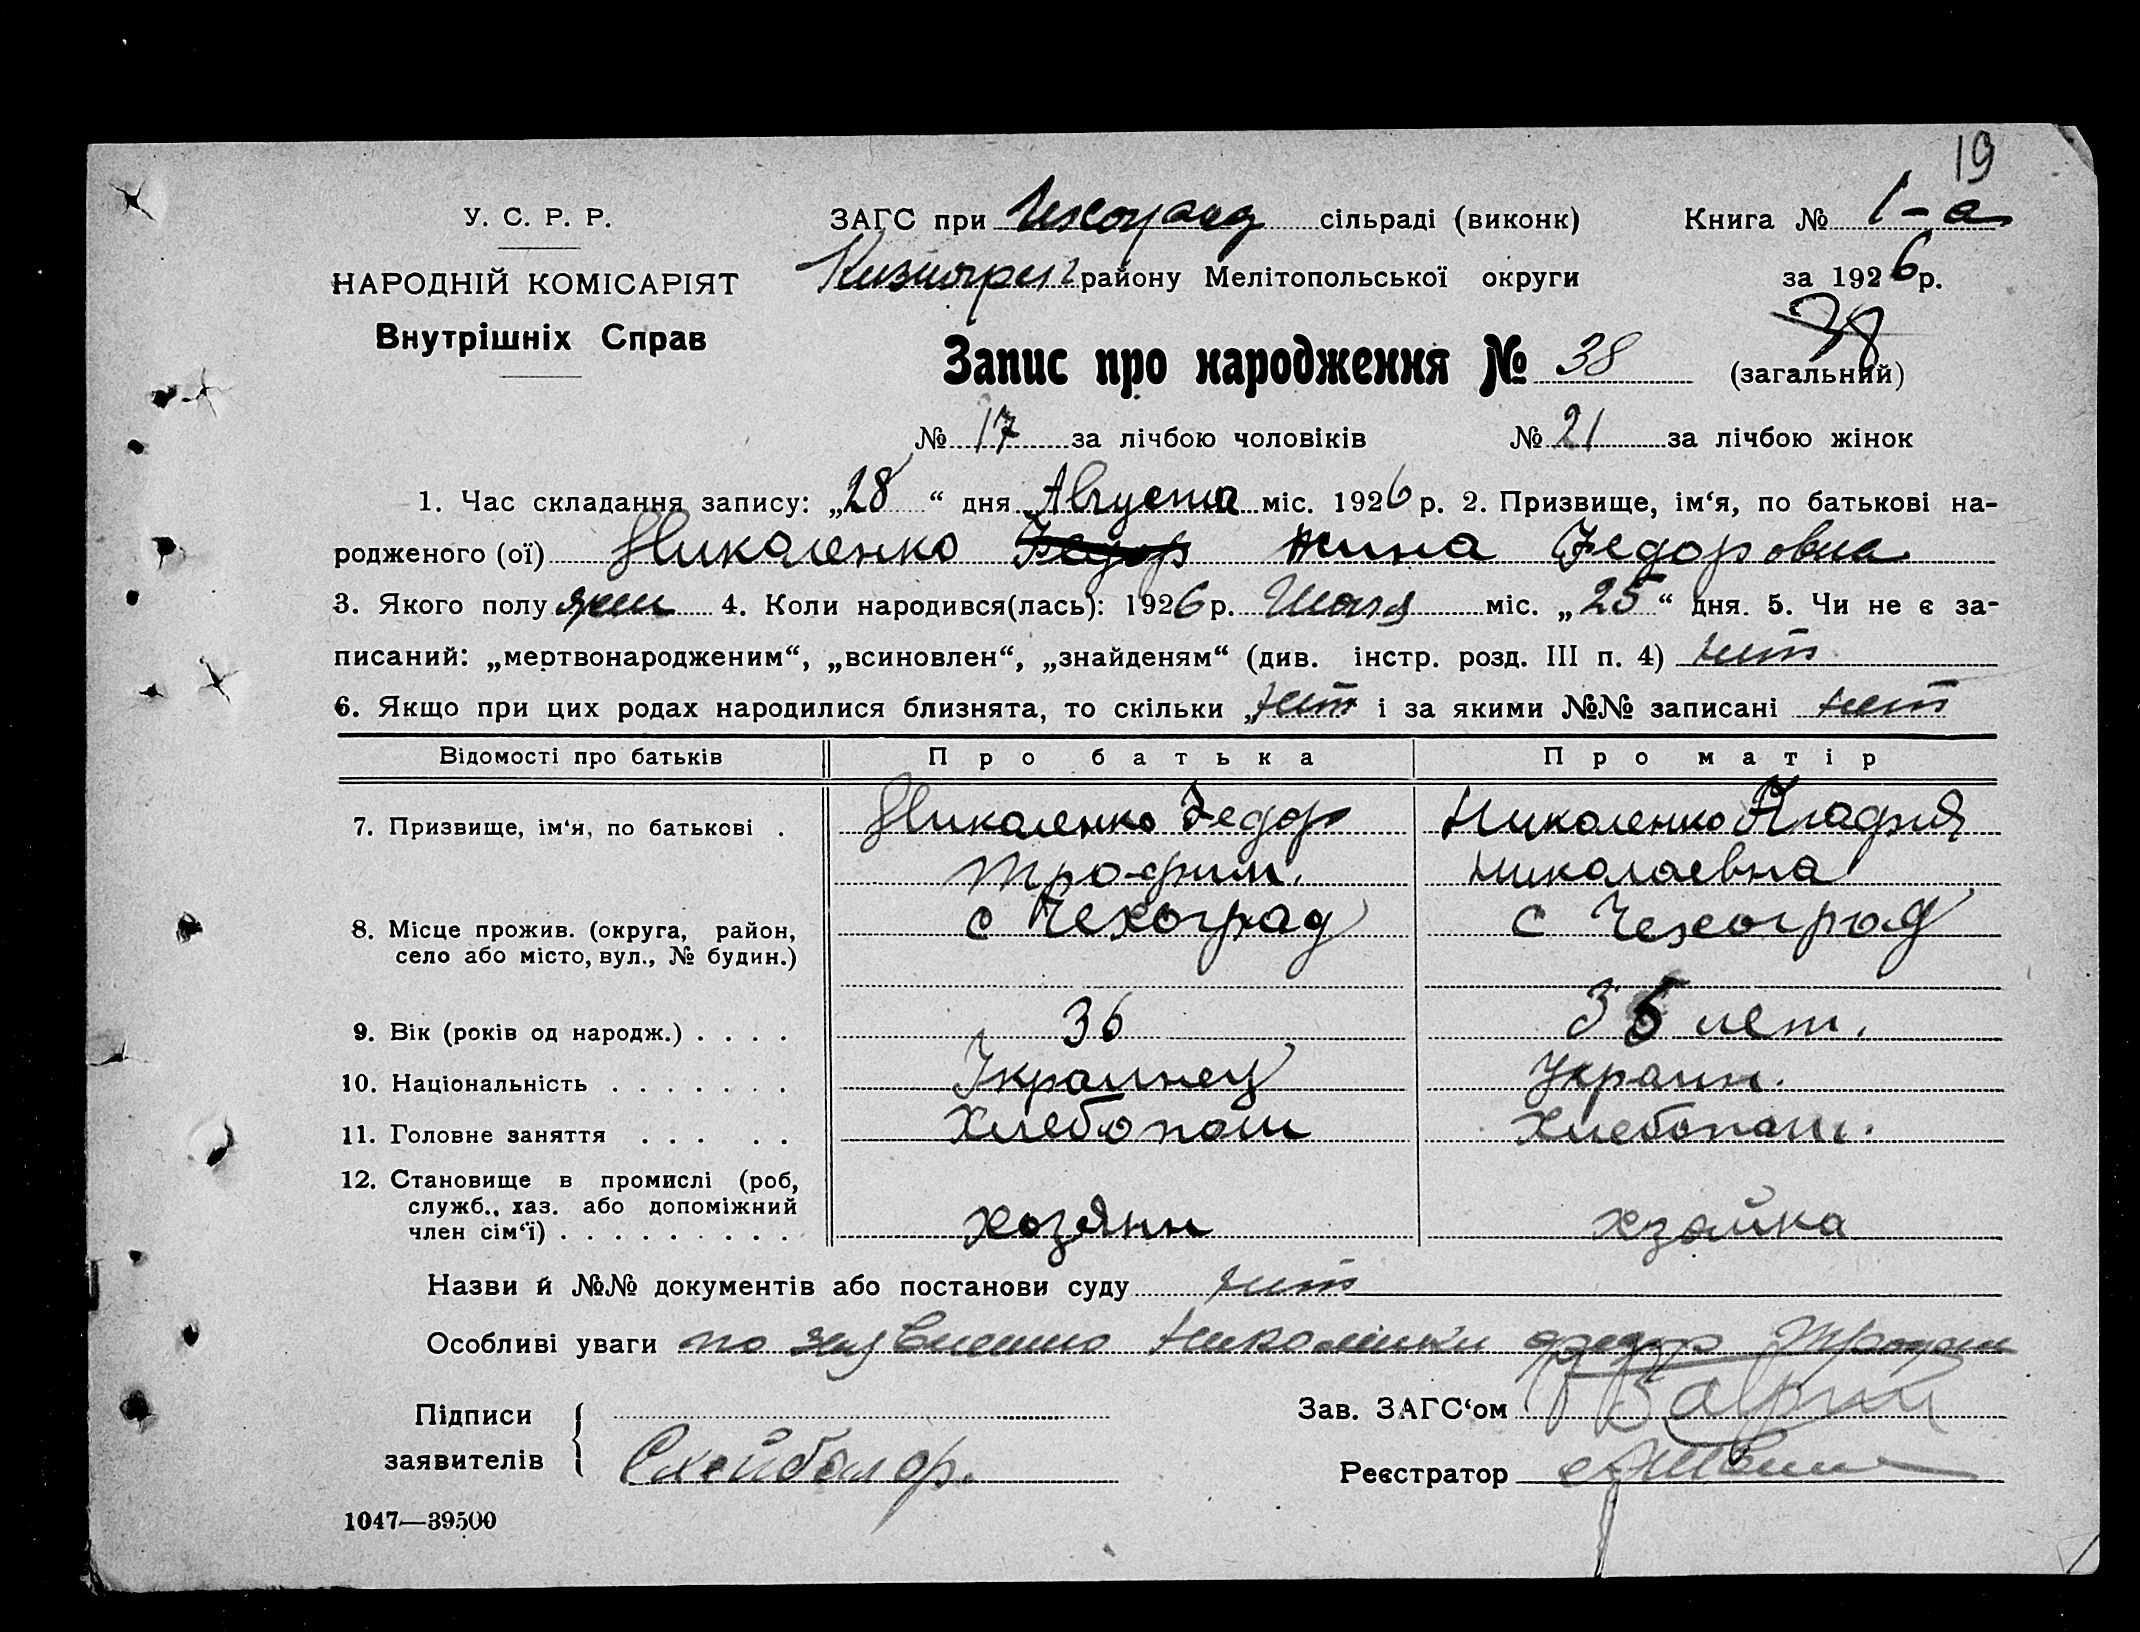 19
У. С. Р. Р. ЗАГС при Чехоград сільраді (виконк) Книга № 1-а
НАРОДНІЙ КОМІСАРІЯТ району Мелітопольської округи за 1926 р.
Внутрішніх Справ
38
Запис про народження № 38 (загальний)
№ 17 за лічбою чоловіків № 21 за лічбою жінок
1. Час складання запису: „28“ дня Августа міс. 1926 р. 2. Призвище, ім‘я, по батькові на-
родженого (ої) Николенко Федор Нина Федоровна
3. Якого полу жен 4. Коли народився(лась): 1926 р. Июля міс. „25“ дня. 5. Чи не є за-
писаний: „мертвонародженим“, „всиновлен“, „знайденям“ (див. інстр. розд. III п. 4) нет
6. Якщо при цих родах народилися близнята, то скільки „нет і за якими №№ записані нет
Відомості про батьків Про батька Про матір
7. Призвище, ім‘я, по батькові . Николенко Федор Николенко
Трофим. Николаевна
8. Місце прожив. (округа, район, с Чехоград с Чехоград
село або місто, вул., № будин.)
9. Вік (років од народж.) . . . . 36 36 лет.
10. Національність . . . . . . . Украинец Украин.
11. Головне заняття . . . . . Хлебопаш Хлебопаш.
12. Становище в промислі (роб,
служб., хаз. або допоміжний
член сім‘ї) . . . . . . . . . хозяин хзайка
Назви й №№ документів або постанови суду нет
Особливі уваги по заявлению Николенки Федор Трофим
Підписи Зав. ЗАГС‘ом
заявителів Реєстратор
1047—39500